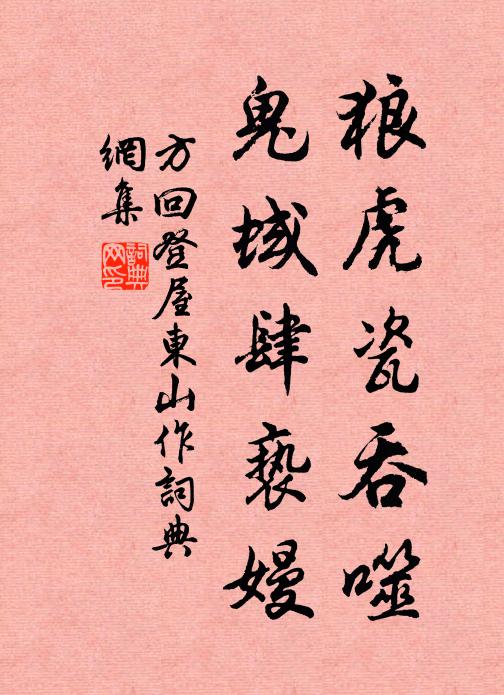 狼虎瓷吞噬
鬼域肆亵嫚
方回登屋東山作詞典
網集
詞典网印